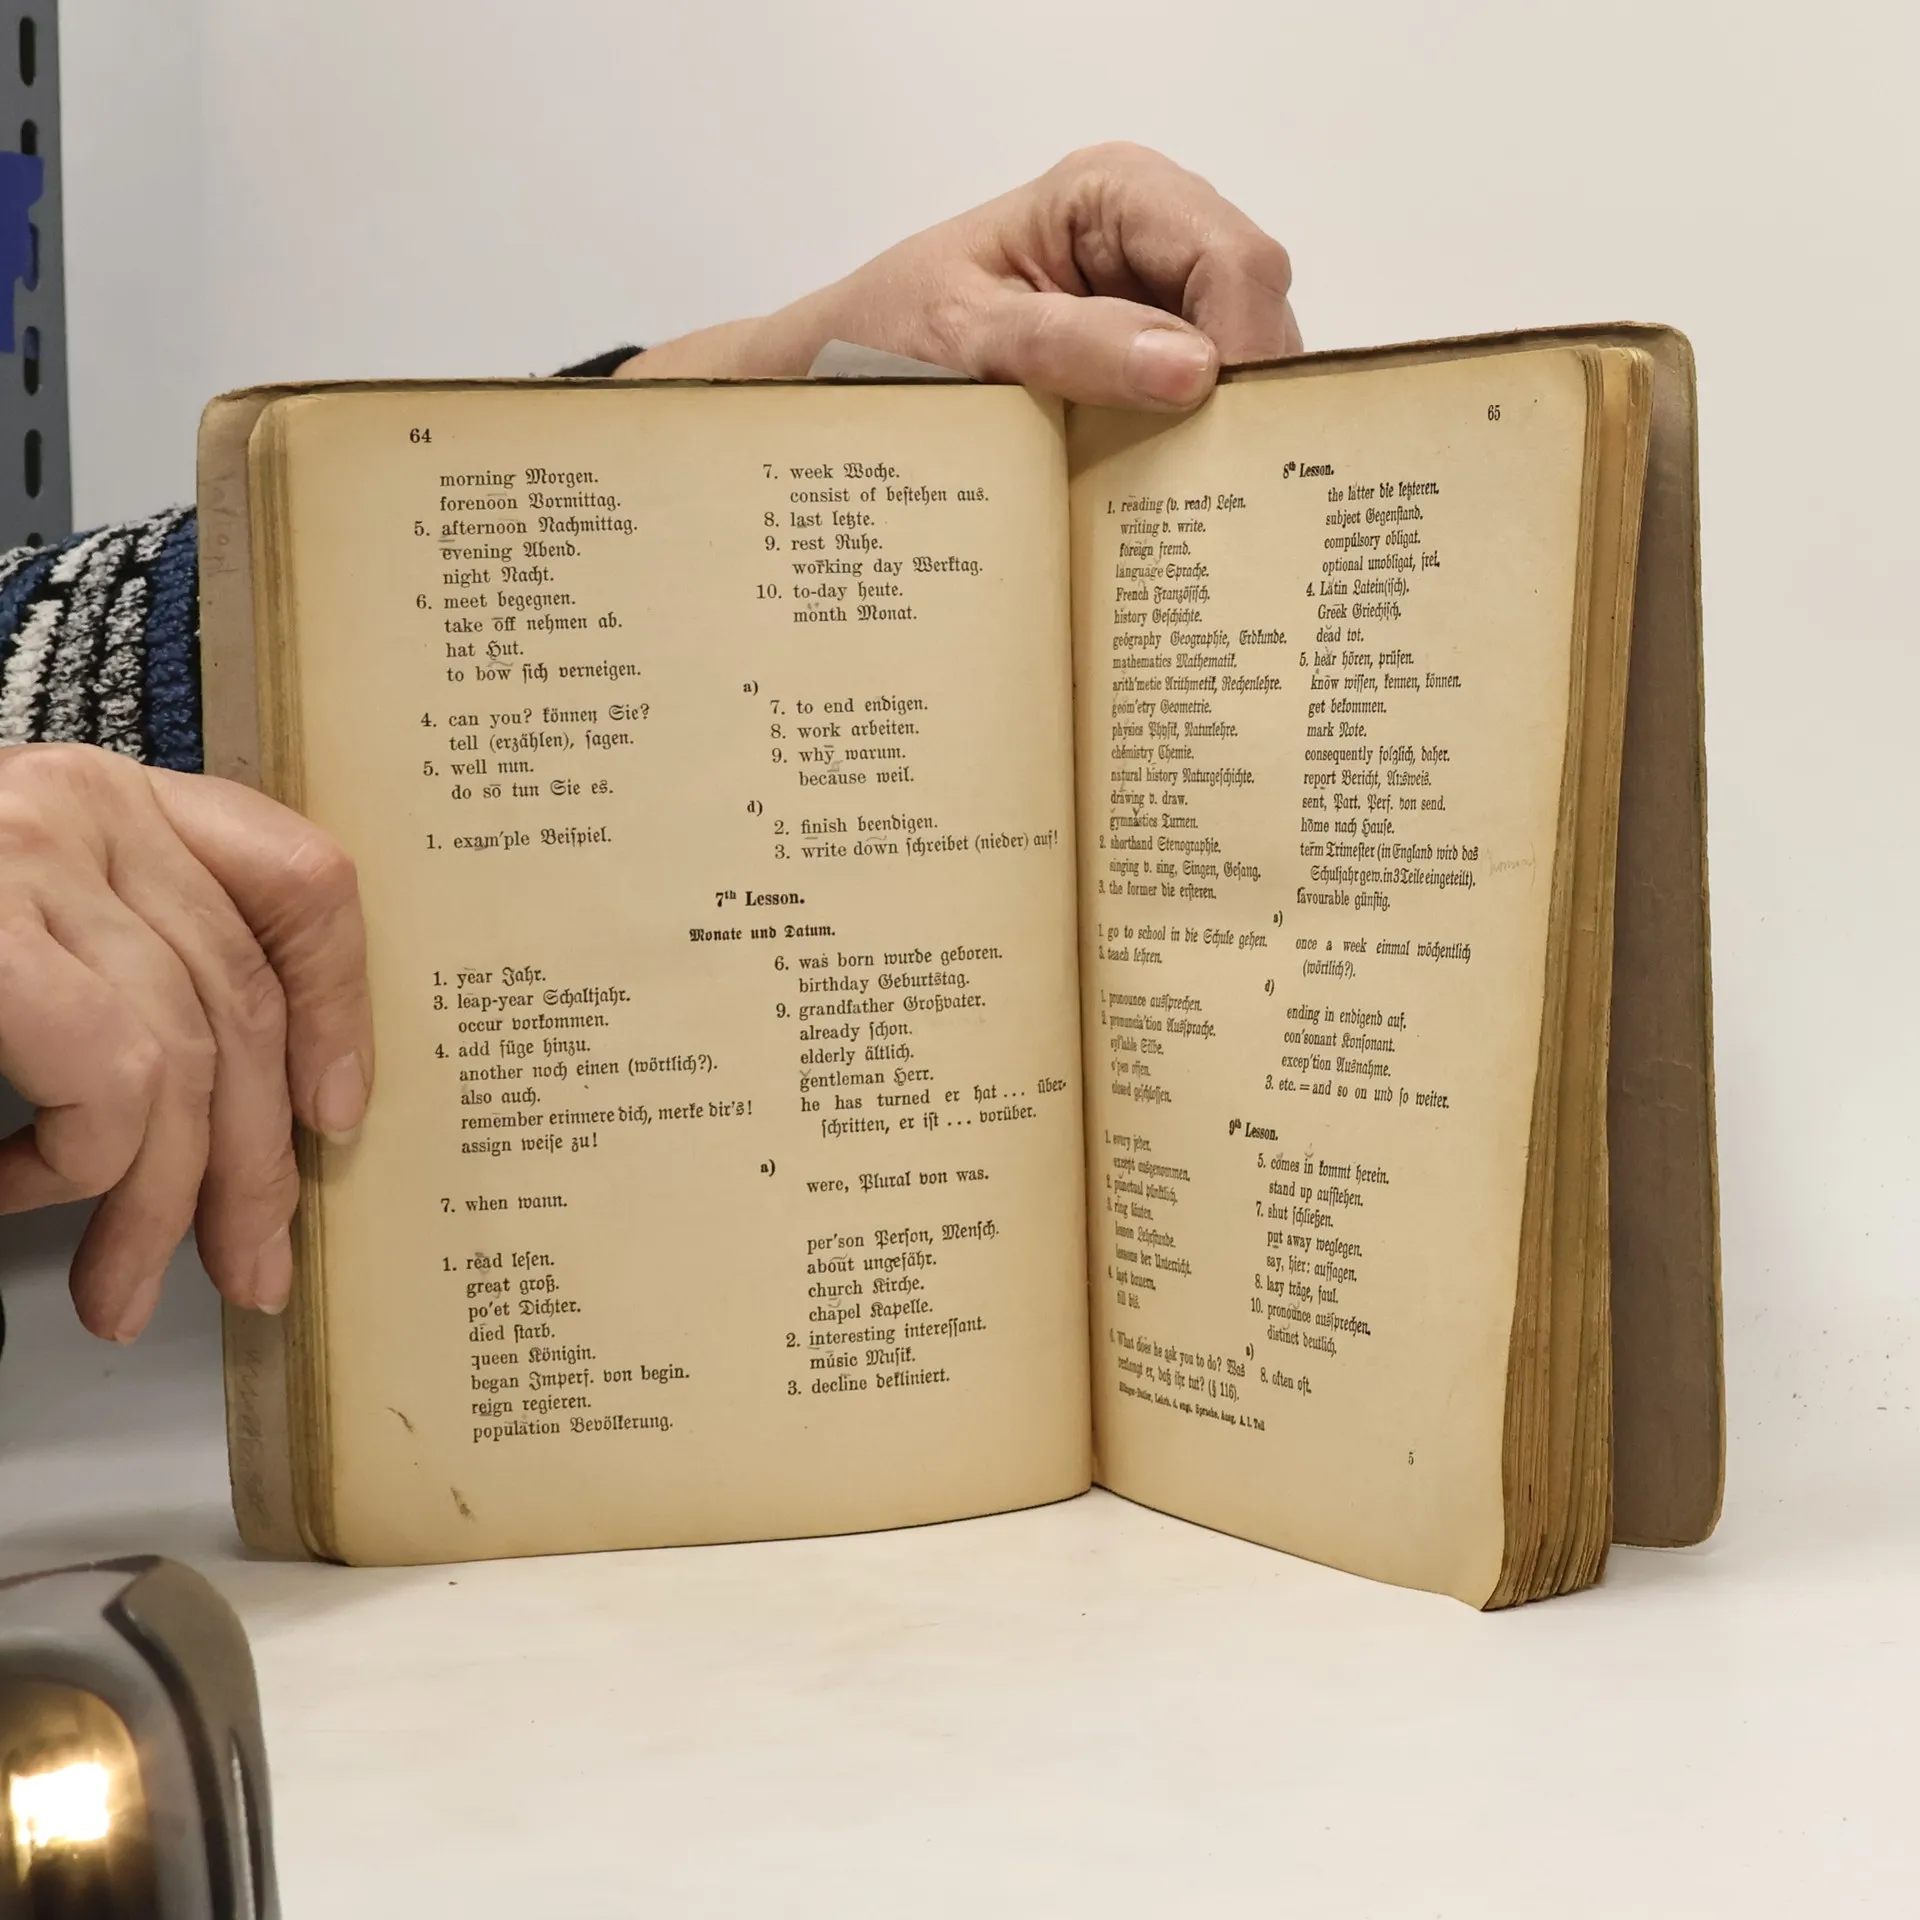 64
morning Morgen.
forenoon Vormittag.
5. afternoon Nachmittag.
evening Abend.
night Nacht.
6. meet begegnen.
take off nehmen ab.
hat Hut.
to bow sich verneigen.
4. can you? können Sie?
tell (erzählen), sagen.
5. well nun.
do so tun Sie es.
1. exam'ple Beispiel.
7. week Woche.
consist of bestehen aus.
8. last letzte.
9. rest Ruhe.
working day Werktag.
10. to-day heute.
month Monat.
a)
7. to end endigen.
8. work arbeiten.
9. why warum.
because weil.
d)
2. finish beendigen.
3. write down schreibet (nieder) auf!
7th Lesson.
Monate und Datum.
1. year Jahr.
3. leap-year Schaltjahr.
occur vorkommen.
4. add füge hinzu.
another noch einen (wörtlich?).
also auch.
remember erinnere dich, merke dir's!
assign weise zu!
7. when wann.
1. read lesen.
great groß.
po'et Dichter.
died starb.
queen Königin.
began Imperf. von begin.
reign regieren.
population Bevölkerung.
6. was born wurde geboren.
birthday Geburtstag.
9. grandfather Großvater.
already schon.
elderly ältlich.
gentleman Herr.
he has turned er hat ... über-
schritten, er ist ... vorüber.
a)
were, Plural von was.
per'son Person, Mensch.
about ungefähr.
church Kirche.
chapel Kapelle.
2. interesting interessant.
músic Musik.
3. decline dekliniert.
65
8th Lesson.
1. reading (v. read) Lesen.
writing v. write.
foreign fremd.
language Sprache.
French Französisch.
history Geschichte.
geógraphy Geographie, Erdkunde.
mathematics Mathematik.
arith'metic Arithmetik, Rechenlehre.
geom'etry Geometrie.
physics Physik, Naturlehre.
chemistry Chemie.
natural history Naturgeschichte.
drawing v. draw.
gymnastics Turnen.
2. shorthand Stenographie.
singing v. sing, Singen, Gesang.
3. the former die ersteren.
the latter die letzteren.
subject Gegenstand.
compúlsory obligat.
optional unobligat, frei.
4. Latin Latein(isch).
Greek Griechisch.
dead tot.
5. hear hören, prüfen.
know wissen, kennen, können.
get bekommen.
mark Note.
consequently folglich, daher.
report Bericht, Ausweis.
sent, Part. Perf. von send.
home nach Hause.
term Trimester (in England wird das
Schuljahr gew. in 3 Teile eingeteilt).
favourable günstig.
a)
1. go to school in die Schule gehen.
3. teach lehren.
once a week einmal wöchentlich
(wörtlich?).
d)
1. pronounce aussprechen.
2. pronuncia'tion Aussprache.
syl'lable Silbe.
o'pen offen.
closed geschlossen.
ending in endigend auf.
con'sonant Konsonant.
excep'tion Ausnahme.
3. etc. = and so on und so weiter.
9th Lesson.
1. every jeder.
except ausgenommen.
2. punctual pünktlich.
3. ring läuten.
lesson Lehrstunde.
lessons der Unterricht.
4. last dauern.
till bis.
5. comes in kommt herein.
stand up aufstehen.
7. shut schließen.
put away weglegen.
say, hier: aufsagen.
8. lazy träge, faul.
10. pronounce aussprechen.
distinct deutlich.
a)
What does he ask you to do? Was
verlangt er, daß ihr tut? (§ 116).
8. often oft.
Lehrb. d. engl. Sprache, Ausg. A. I. Teil
5